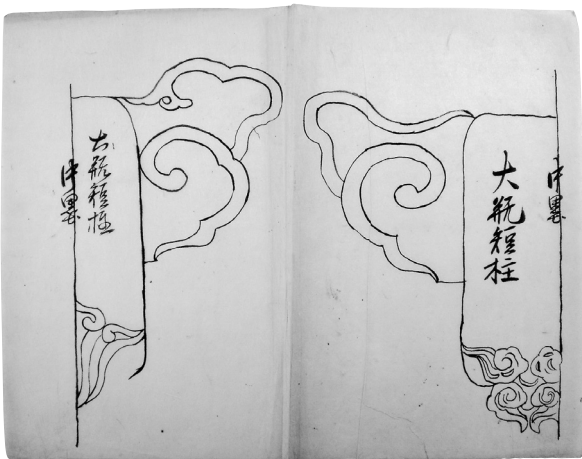 中墨
大瓶短柱
大瓶短柱
中墨